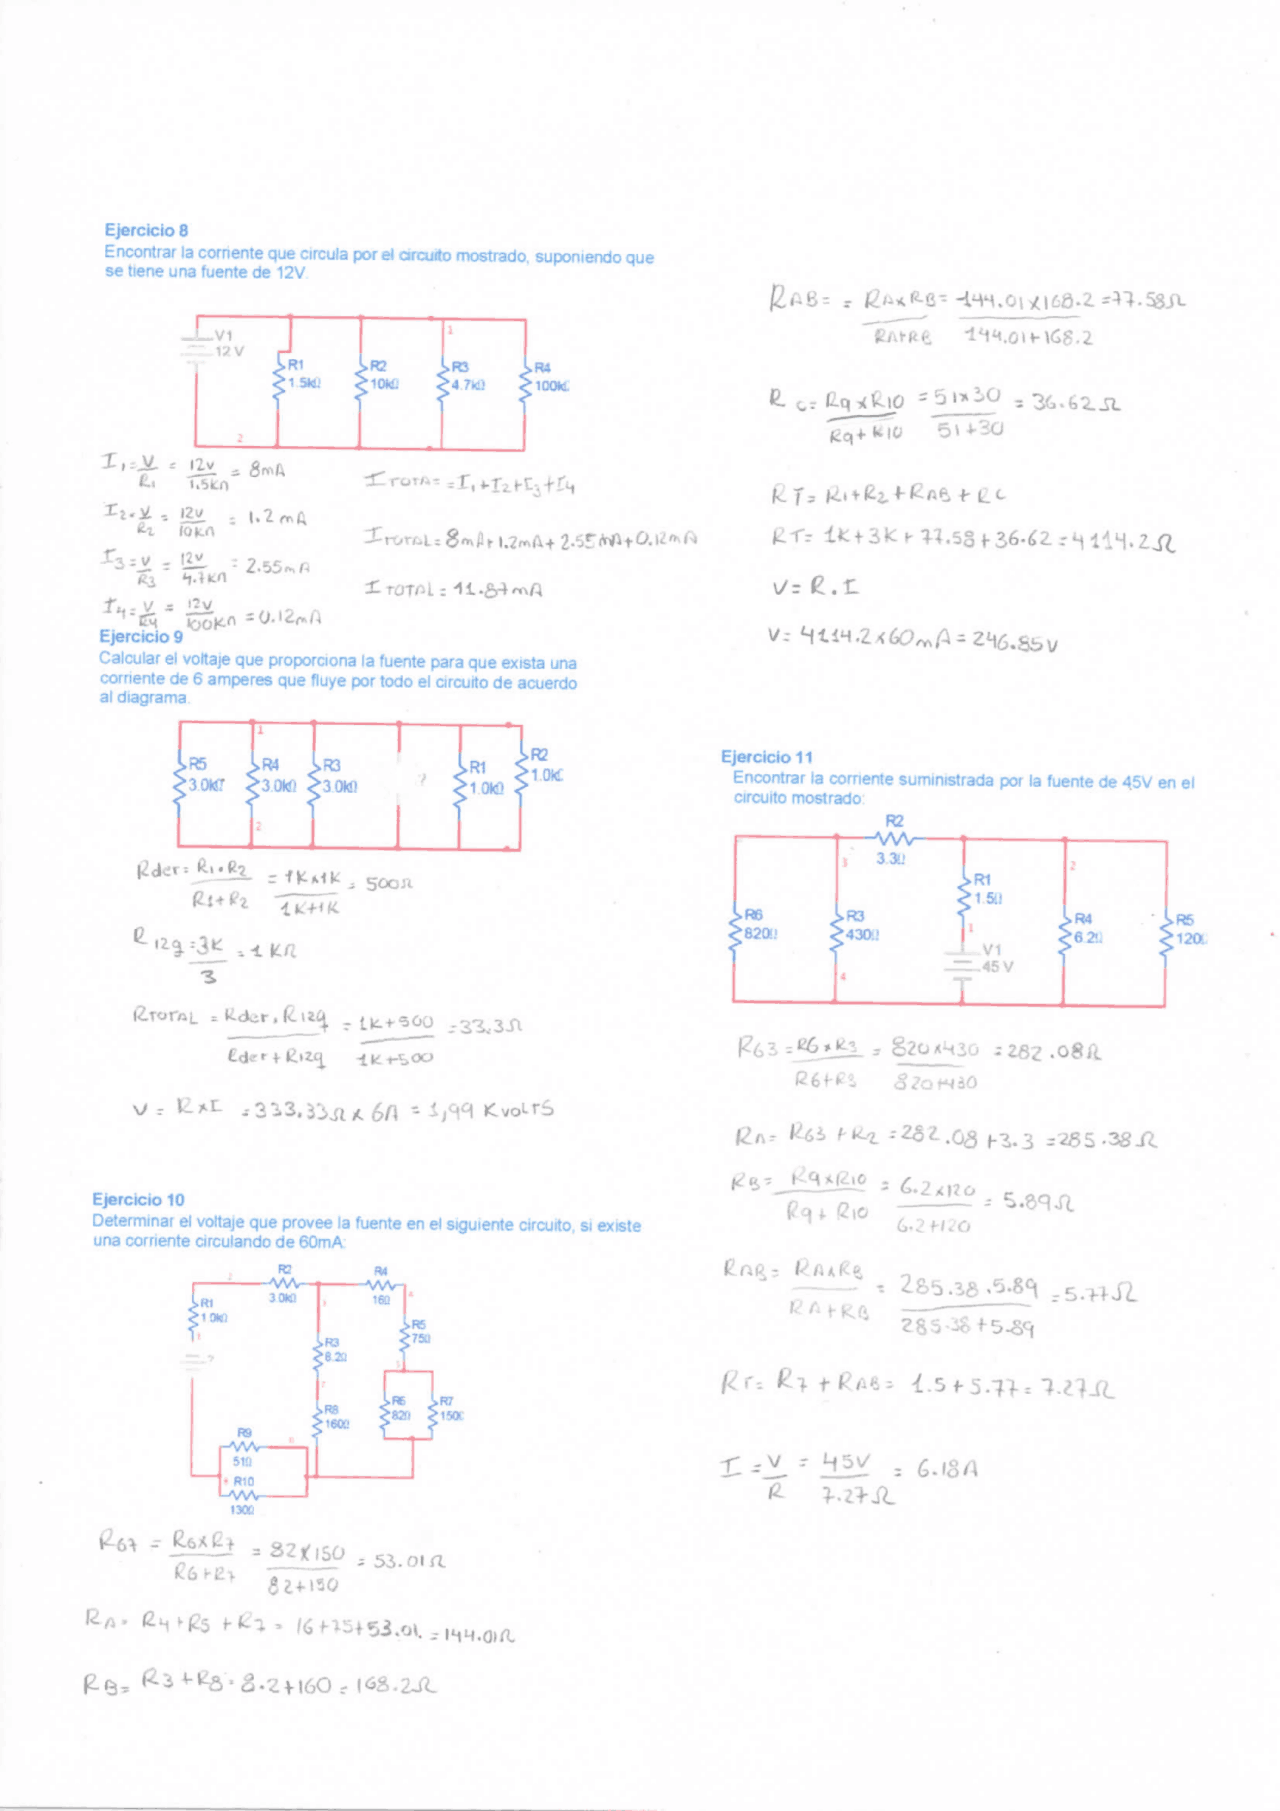 Ejercicio 8
Encontrar la corriente que circula por el circuito mostrado, suponiendo que
se tiene una fuente de 12V.
V1
12 V
R1
1.5kΩ
R2
10kΩ
R3
4.7kΩ
R4
100kΩ
1
2
I1 = V/R1 = 12v/1.5KΩ = 8mA
I2 = V/R2 = 12v/10KΩ = 1.2mA
I3 = V/R3 = 12v/4.7KΩ = 2.55mA
I4 = V/R4 = 12v/100KΩ = 0.12mA
I TOTAL = = I1+I2+I3+I4
I TOTAL = 8mA+1.2mA+2.55mA+0.12mA
I TOTAL = 11.87mA
Ejercicio 9
Calcular el voltaje que proporciona la fuente para que exista una
corriente de 6 amperes que fluye por todo el circuito de acuerdo
al diagrama.
R5
3.0kΩ
R4
3.0kΩ
R3
3.0kΩ
?
R1
1.0kΩ
R2
1.0kΩ
1
2
Rder = R1.R2/R1+R2 = 1K×1K/1K+1K = 500Ω
R izq = 3K/3 = 1KΩ
RTOTAL = Rder.Rizq/Rder+Rizq = 1K+500/1K+500 = 33.3Ω
V = R×I = 333.33Ω × 6A = 1,99 KvoLTS
Ejercicio 10
Determinar el voltaje que provee la fuente en el siguiente circuito, si existe
una corriente circulando de 60mA:
R1
1.0kΩ
R2
3.0kΩ
R4
16Ω
R5
75Ω
R3
8.2Ω
R8
160Ω
R6
82Ω
R7
150Ω
R9
51Ω
R10
130Ω
?
R67 = R6×R7/R6+R7 = 82×150/82+150 = 53.01Ω
RA = R4+R5+R7 = 16+75+53.01 = 144.01Ω
RB = R3+R8 = 8.2+160 = 168.2Ω
RAB = = RA×RB/RA+RB = 144.01×168.2/144.01+168.2 = 77.58Ω
RC = R9×R10/R9+R10 = 51×30/51+30 = 36.62Ω
RT = R1+R2+RAB+RC
RT = 1K+3K+77.58+36.62 = 4114.2Ω
V = R.I
V = 4114.2×60mA = 246.85v
Ejercicio 11
Encontrar la corriente suministrada por la fuente de 45V en el
circuito mostrado:
R2
3.3Ω
R1
1.5Ω
R6
820Ω
R3
430Ω
V1
45 V
R4
6.2Ω
R5
120Ω
3
2
1
4
R63 = R6×R3/R6+R3 = 820×430/820+430 = 282.08Ω
RA = R63+R2 = 282.08+3.3 = 285.38Ω
RB = R9×R10/R9+R10 = 6.2×120/6.2+120 = 5.89Ω
RAB = RA×RB/RA+RB = 285.38.5.89/285.38+5.89 = 5.77Ω
RT = R7+RAB = 1.5+5.77 = 7.27Ω
I = V/R = 45V/7.27Ω = 6.18A